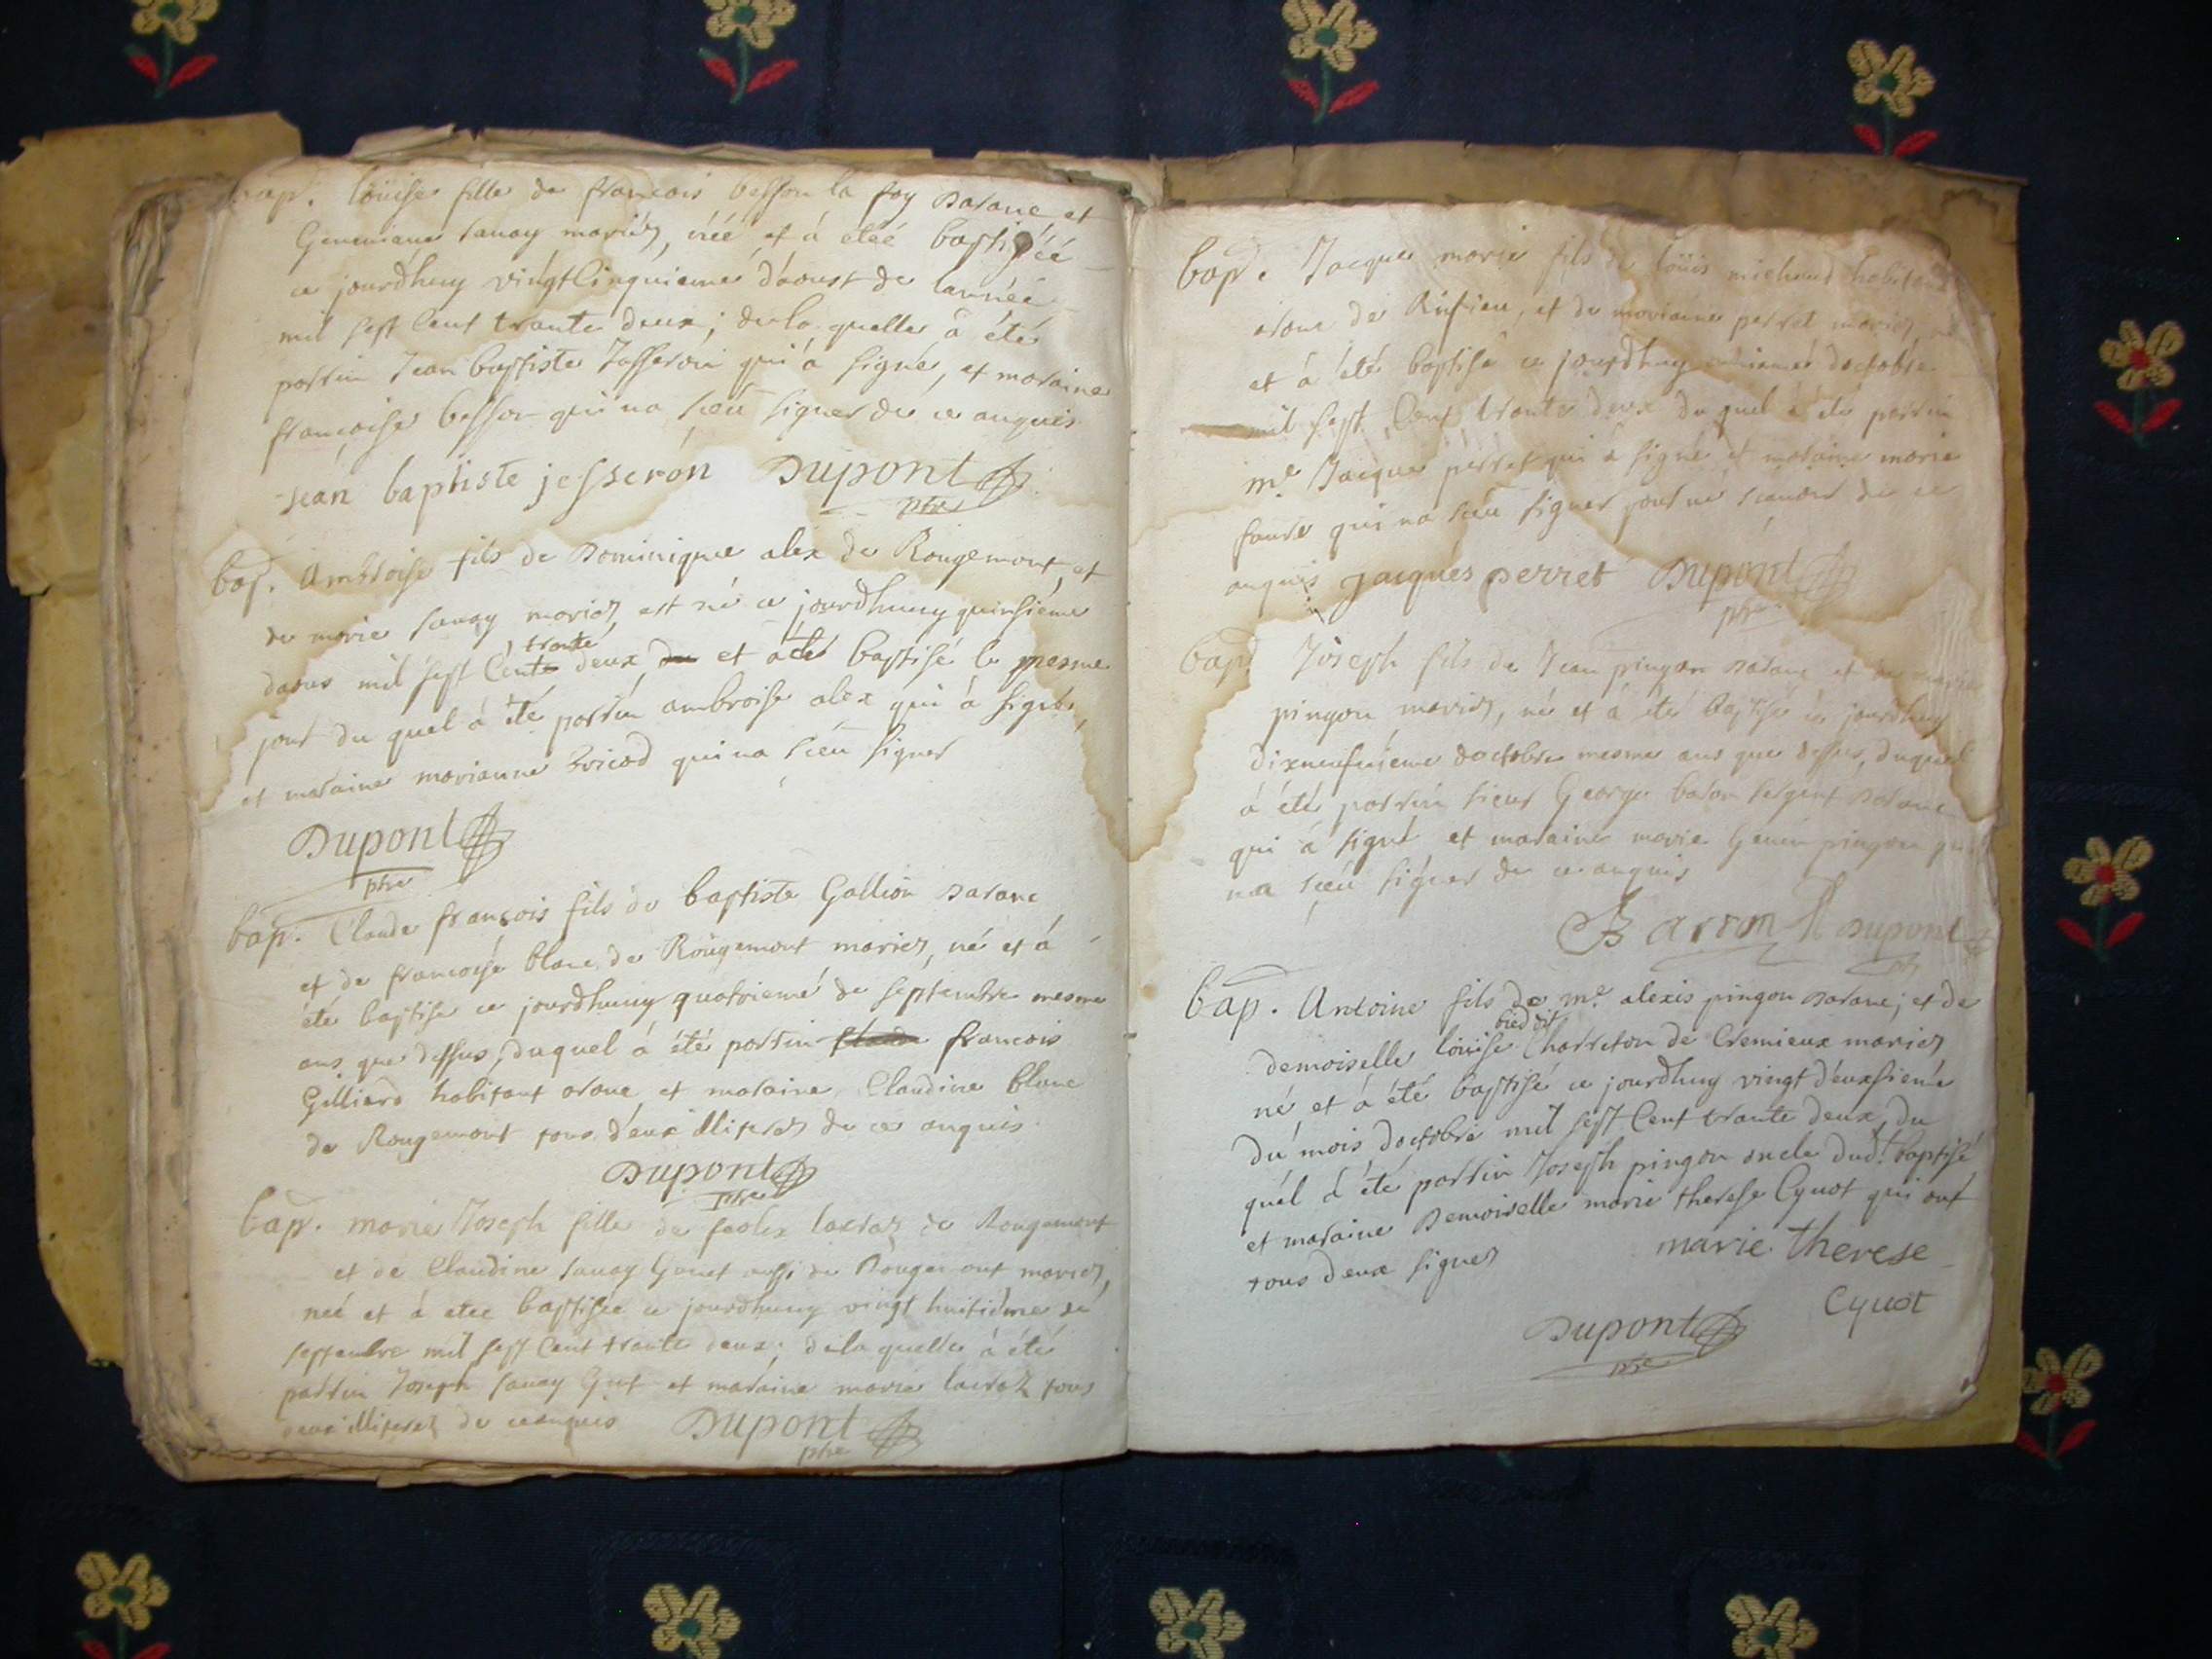 bap. loüise fille de francois besson la foy darane et
Genevieve savay mariés, néé et á etéé baptiséé
ce jourdhuy vingtcinquieme daoust de lannéé
mil sept cent trante deux; de la quelle á été
parrin Jean baptiste Josseron qui á signé, et maraine
francoise besson qui na sceü signer de ce anquis
jean baptiste jesseron Dupont
ptre
bap. Ambroise fils de Dominique alex de Rougemont, et
de marie savay mariés est né ce jourdhuy quinsieme
trante
daous mil sept Cent deux, et a été baptisé le mesme
jour du quel á été parrin ambroise alex qui á signé,
et maraine marianne bricod qui na sceu signer
Dupont
ptre
bap. Claude francois fils de baptiste Gallion darane
et de francoise blanc de Rougemont mariés, né et á
été baptisé ce jourdhuy quatrieme de septembre mesme
ans que dessus, duquel á été parrin francois
Gilliard habitant arane et maraine Claudine blanc
de Rougemont tous deux illiterés de ce anquis
Dupont
ptre
bap. marie Joseph fille de feolix lacraz de Rougemont
et de Claudine savay Guet aussi de Rougemont mariés,
neé et á eteé baptiseé ce jourdhuy vingt huitiéme de
septembre mil sept Cent trante deux; de la quelle á été
parrin Joseph savay Guet et maraine marie lacraz tous
deux illiterez de ceanquis Dupont
ptre
bap. Jacque marie fils de loüis michaud habitant
arane de Rufieu, et de marianne perret mariés, né
et á été baptisé ce jourdhuy doctobre
mil sept Cent trante deux du quel á été parrin
me. Jacque perret qui á signé et maraine marie
faure qui na sceü signer pour ne scavoir de ce
anquis jacques perret Dupont
ptre
bap. Joseph fils de Jean pingon darane et de
pingon mariés, né et á été baptisé ce jourdhuy
dixneufvieme doctobre mesme ans que dessus, duquel
á été parrin sieur George baron sergent darane
qui á signé et maraine marie Genev pingon qui
na sceu signer de ce anquis
Barron Dupont
ptre
bap. Antoine fils de me. alexis pingon darane; et de
bied dit
demoiselle loüise Charreton de Cremieux mariés
né et á été baptisé ce jourdhuy vingt deuxsieme
du mois doctobre mil sept Cent trante deux, du
quel á été parrin Joseph pingon oncle dudt. baptisé
et maraine Demoiselle marie therese Cyuot qui ont
tous deux signés marie therese
Cyuot
Dupont
ptre